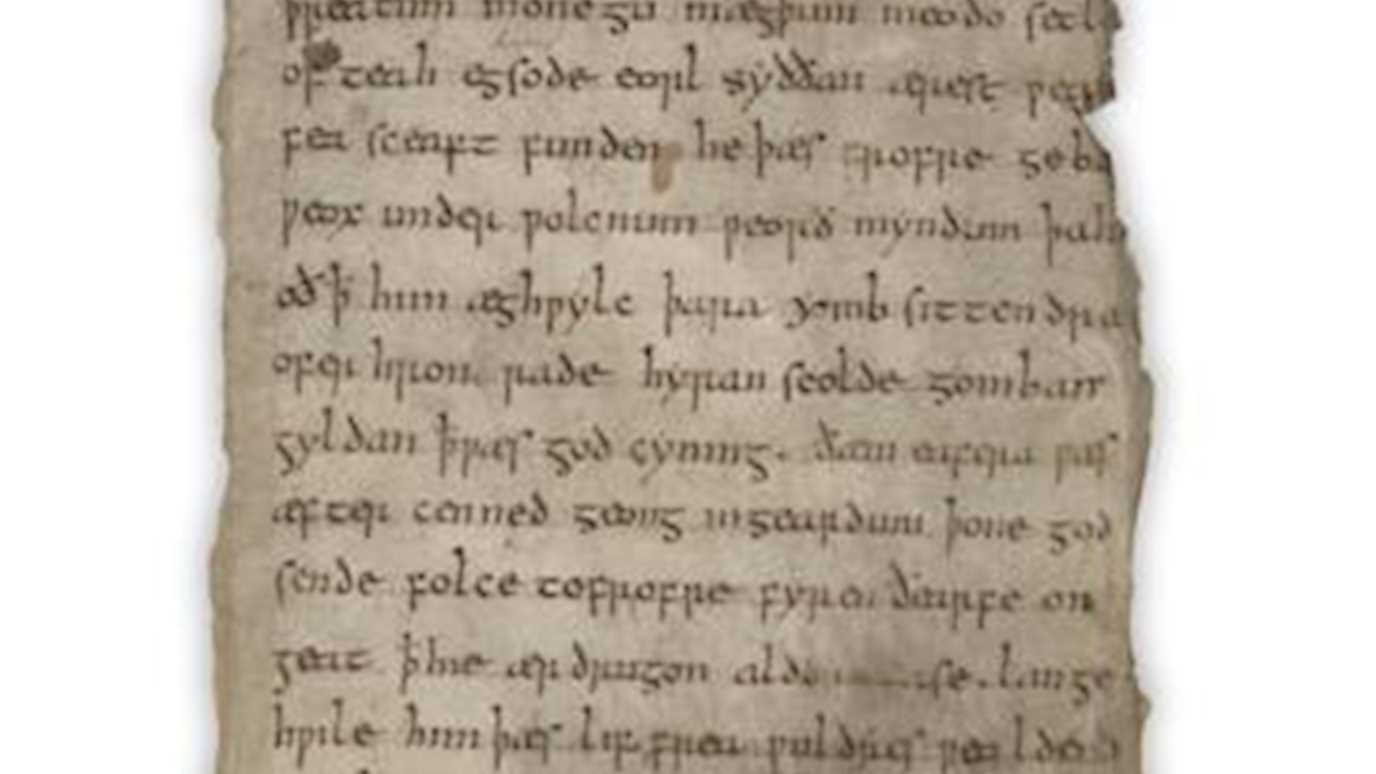 þreatum monegū mægþum meodo setl
of teah egsode eorl syððan ærest
fea sceaft funden he þæs frofre geba
weox under wolcnum weorð myndum þah
oð ꝥ him æghwylc þara ymb sittendra
ofer hron rade hyran scolde gomban
gyldan ꝥ wæs god cyning. ðam eafera wæs
æfter cenned geong in geardum þone god
sende folce to frofre fyren ðearfe on
geat ꝥ hie ær drugon aldo se. lange
hwile him þæs lif frea wuldres wealdend